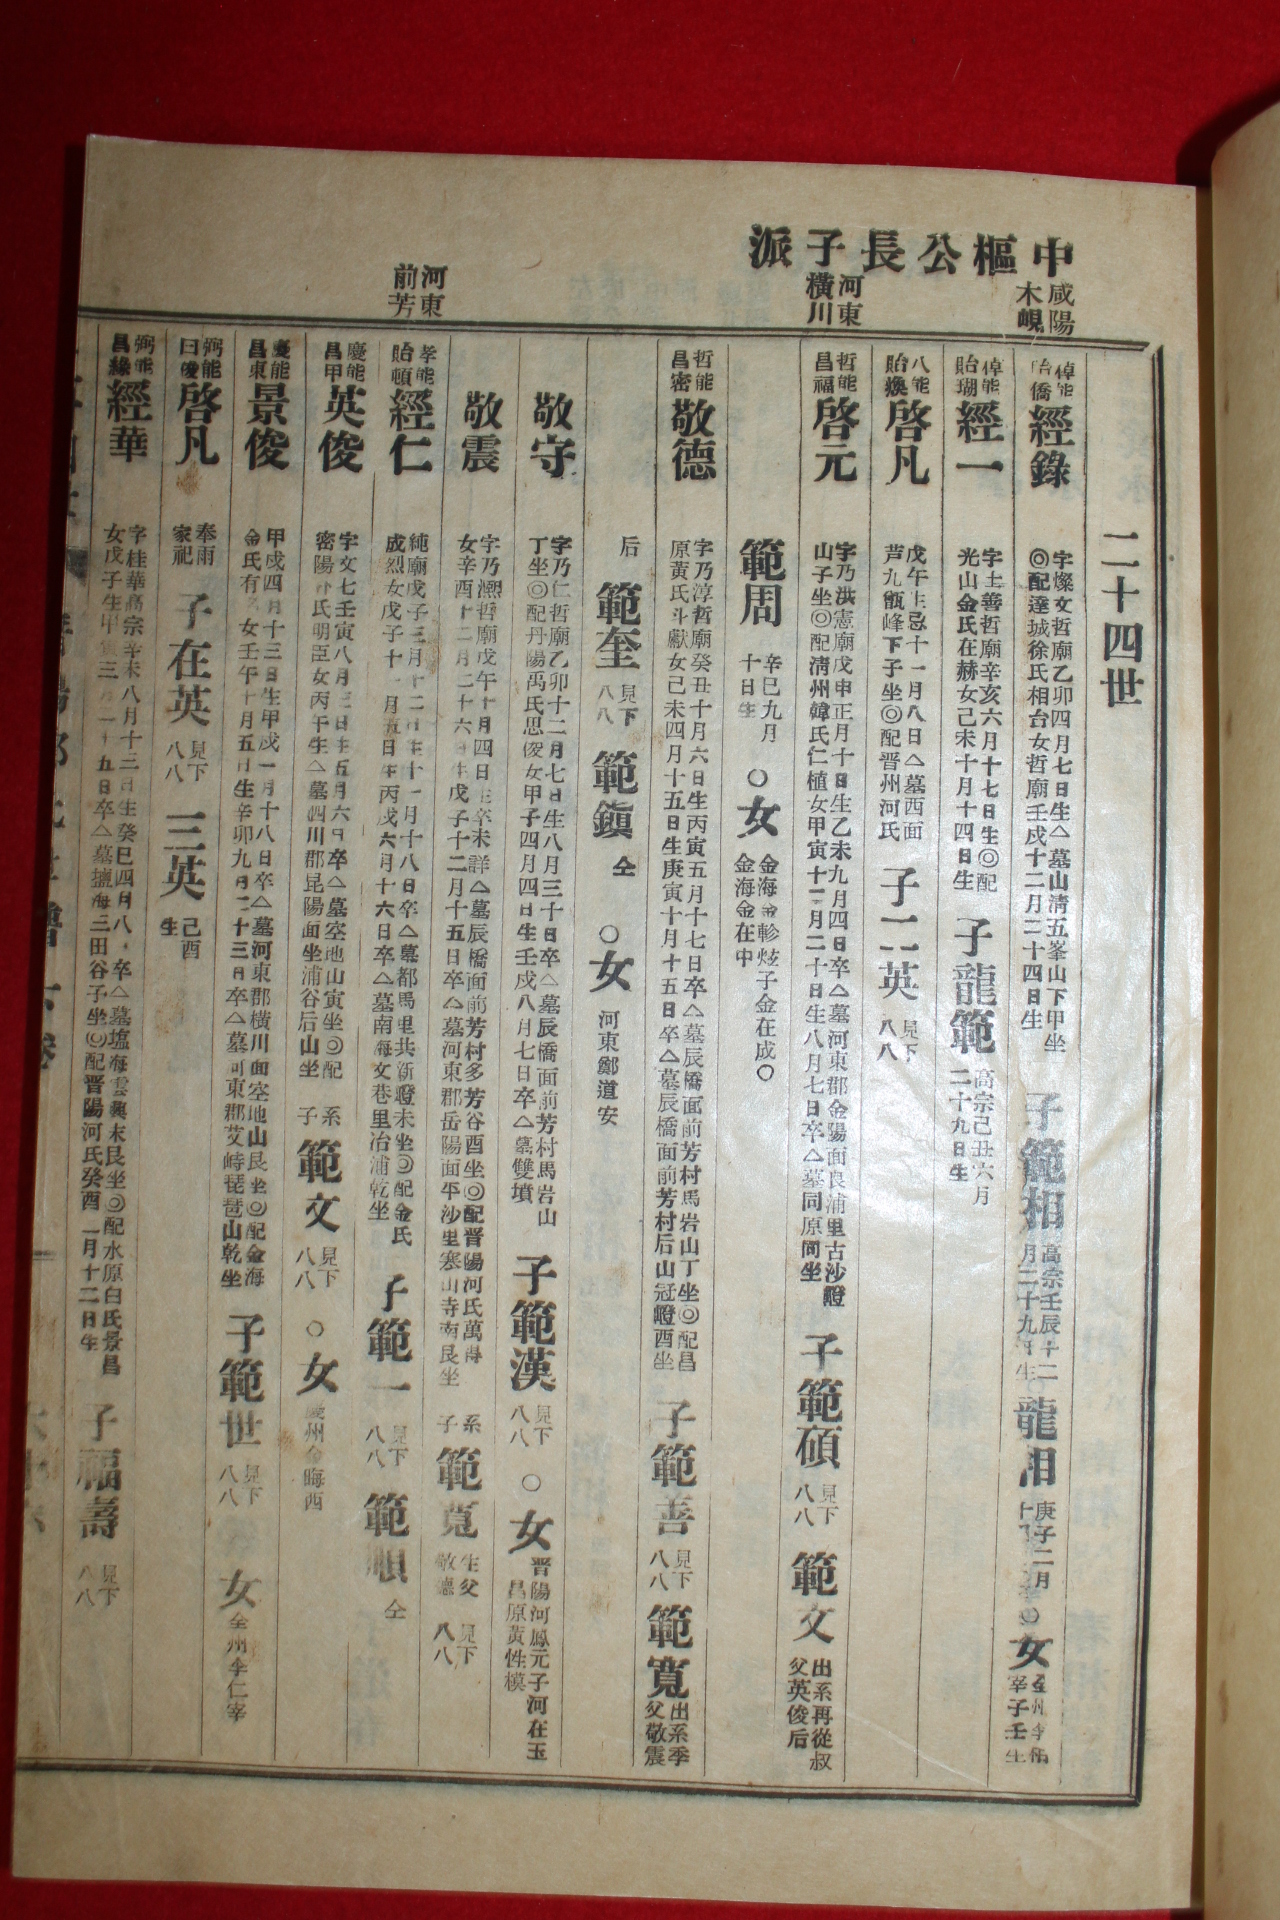 中樞公長子派
咸陽
木峴
河東
橫川
河東
前芳
二十四世
倬能
貽僑
經錄
字燦文哲廟乙卯四月七日生△墓山淸五峯山下甲坐
◎配達城徐氏相台女哲廟壬戌十二月二十四日生
子範相
高宗壬辰十二
月二十九日生
龍相
庚子二月
○女
宰子壬生
倬能
貽瑚
經一
字士善哲廟辛亥六月十七日生◎配
光山金氏在赫女己未十月十四日生
子龍範
高宗己丑六月
二十九日生
八能
貽煥
啓凡
戊午生忌十一月八日△墓西面
芦九甑峰下子坐◎配晋州河氏
子二英
見下
八八
哲能
昌福
啓元
字乃洪憲廟戊申正月十日生乙未九月四日卒△墓河東郡金陽面良浦里古沙嶝
山子坐◎配淸州韓氏仁植女甲寅十二月二十日生八月七日卒△墓同原間坐
子範碩
見下
八八
範文
出系再從叔
父英俊后
範周
辛巳九月
十日生
○女
金海金軫炫子金在成○
金海金在中
哲能
昌密
敬德
字乃淳哲廟癸丑十月六日生丙寅五月十七日卒△墓辰橋面前芳村馬岩山丁坐◎配昌
原黃氏斗獻女己未四月十五日生庚寅十月十五日卒△墓辰橋面前芳村后山冠嶝酉坐
子範善
見下
八八
範寬
出系季
父敬震
后
範奎
見下
八八
範鎭
仝
○女
河東鄭道安
敬守
字乃仁哲廟乙卯十二月七日生八月三十日卒△墓辰僑面前芳村馬岩山
丁坐◎配丹陽禹氏思俊女甲子四月四日生壬戌八月七日卒△墓雙墳
子範漢
見下
八八
○女
晋陽河鳳元子河在玉
昌原黃性模
敬震
字乃凞哲廟戊午十月四日生卒未詳△墓辰橋面前芳村多芳谷酉坐◎配晋陽河氏萬得
女辛酉十二月二十六日生戊子十二月十五日卒△墓河東郡岳陽面平沙里寒山寺南艮坐
系
子
範寬
生父
敬德
見下
八八
孝能
貽頓
經仁
純廟戊子三月十二日生十一月十八日卒△墓都馬里共新嶝未坐◎配金氏
成烈女戊子十一月五日生丙戌六月十六日卒△墓南海文巷里冶浦乾坐
子範一
見下
八八
範順
仝
慶能
昌甲
英俊
字文七壬寅八月三日生五月六日卒△墓空地山寅坐◎配
密陽朴氏明臣女丙午生△墓泗川郡昆陽面坐浦谷后山坐
系
子
範文
見下
八八
○女
慶州金晦西
慶能
昌東
景俊
甲戌四月十三日生甲戌一月十八日卒△墓河東郡橫川面空地山艮坐◎配金海
金氏有名女壬午十月五日生辛卯九月二十三日卒△墓河東郡艾峙琵琶山乾坐
子範世
見下
八八
女
全州李仁宰
弼能
日燮
啓凡
奉雨
家祀
子在英
見下
八八
三英
己酉
生
弼能
昌緣
經華
字桂華高宗辛未八月十三日生癸巳四月八日卒△墓塩海雲興末艮坐◎配水原白氏景昌
女戊子生甲寅三月二十五日卒△墓塩海三田谷子坐◎配晋陽河氏癸酉一月十二日生
子福壽
見下
八八